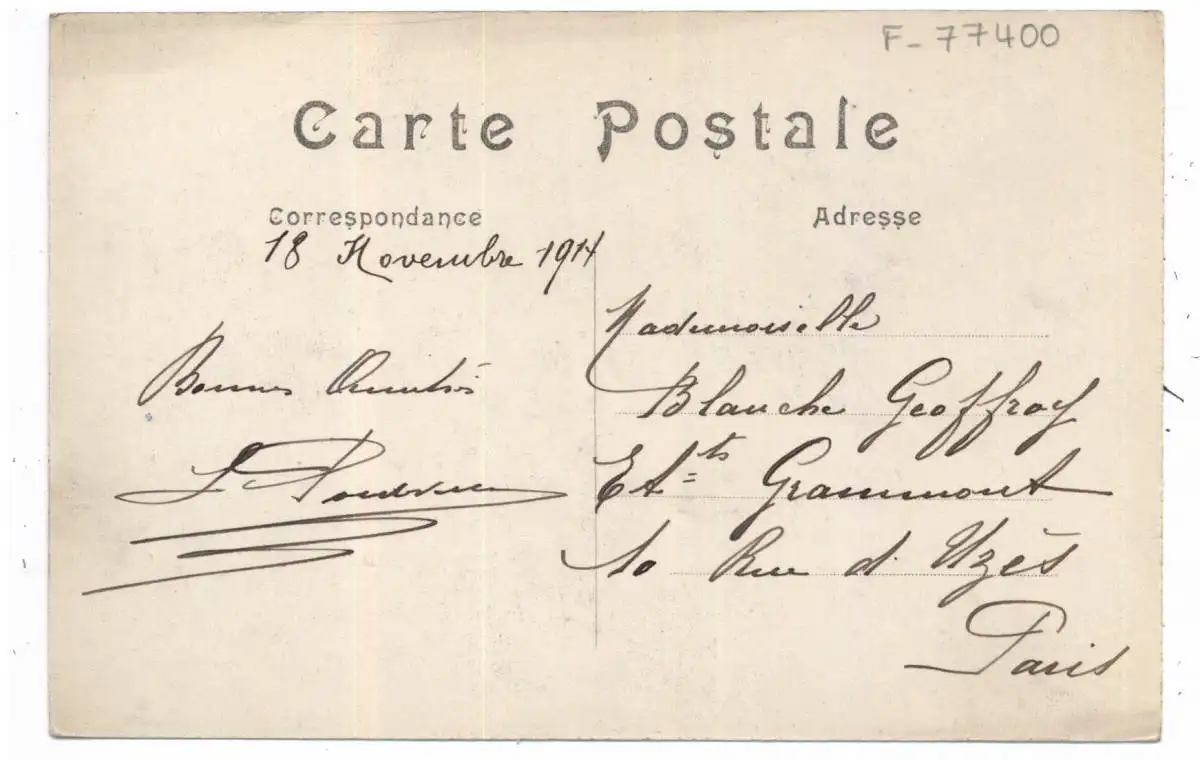 F-77400
Carte Postale
Correspondance
Adresse
18 Novembre 1914
Bonnes Amitiés
L.
Mademoiselle
Blanche Geoffroy
Etts Grammont
10 Rue d'Uzès
Paris